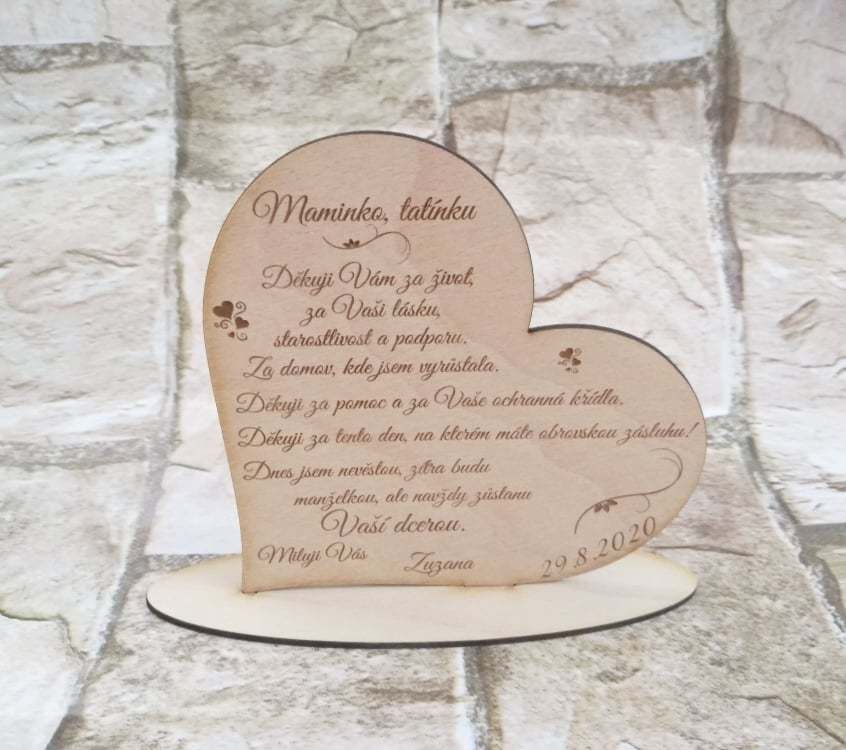 Maminko, tatínku
Děkuji Vám za život,
za Vaši lásku,
starostlivost a podporu.
Za domov, kde jsem vyrůstala.
Děkuji za pomoc a za Vaše ochranná křídla.
Děkuji za tento den, na kterém máte obrovskou zásluhu!
Dnes jsem nevěstou, zítra budu
manželkou, ale navždy zůstanu
Vaší dcerou.
Miluji Vás
Zuzana
29.8.2020